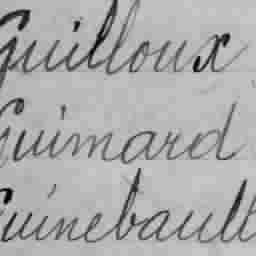 Guilloux
Guimard
Guinebault